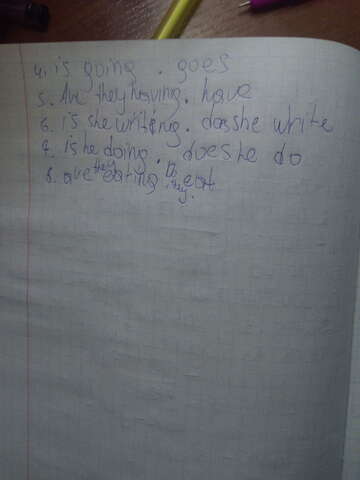 4. is going . goes
5. Are they having. have
6. is she writing. does she write
7. is he doing. does he do
8. are they eating Do they eat.